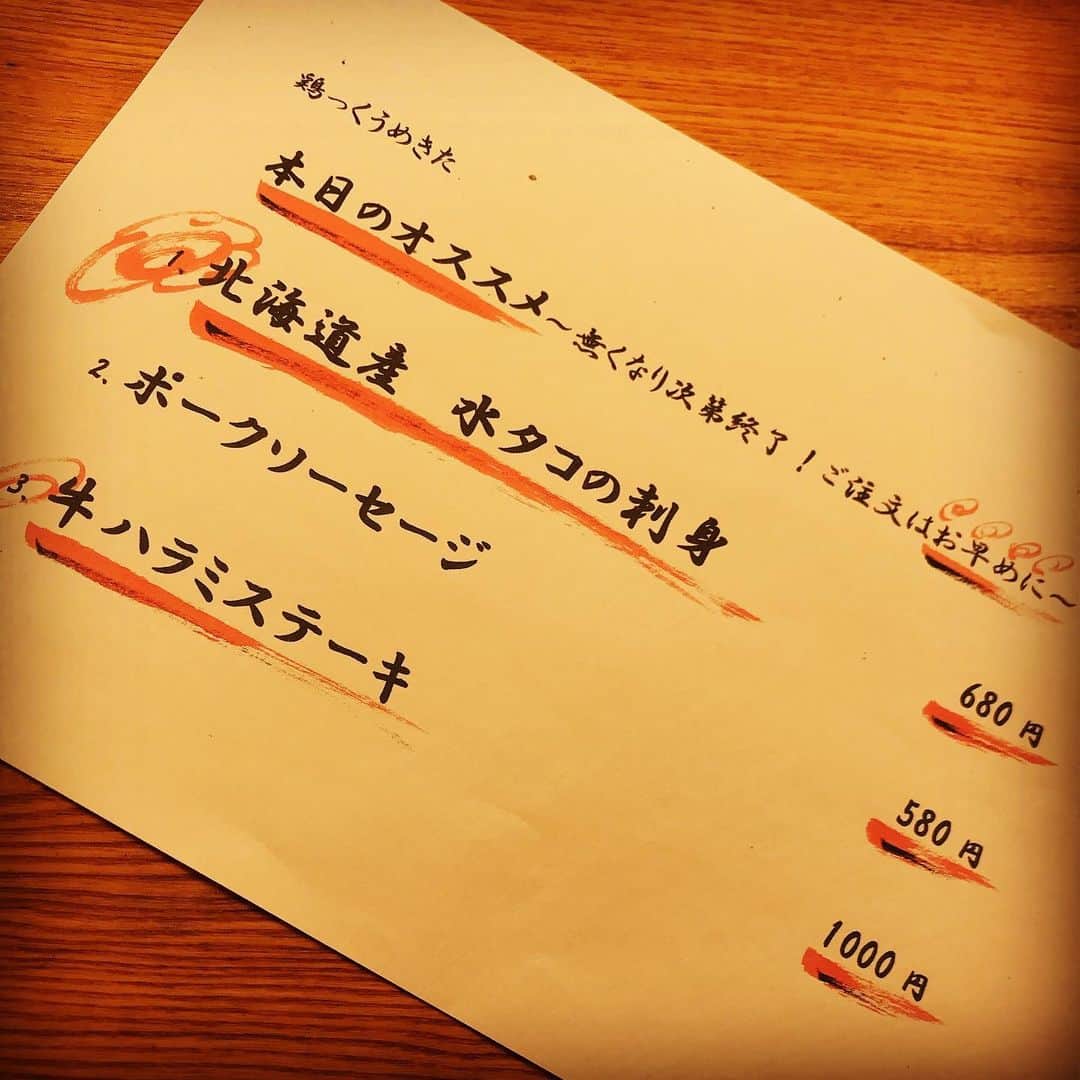 鶏っくうめきた
本日のオススメ～無くなり次第終了！ご注文はお早めに～
1、北海道産　水タコの刺身 680円
2、ポークソーセージ 580円
3、牛ハラミステーキ 1000円